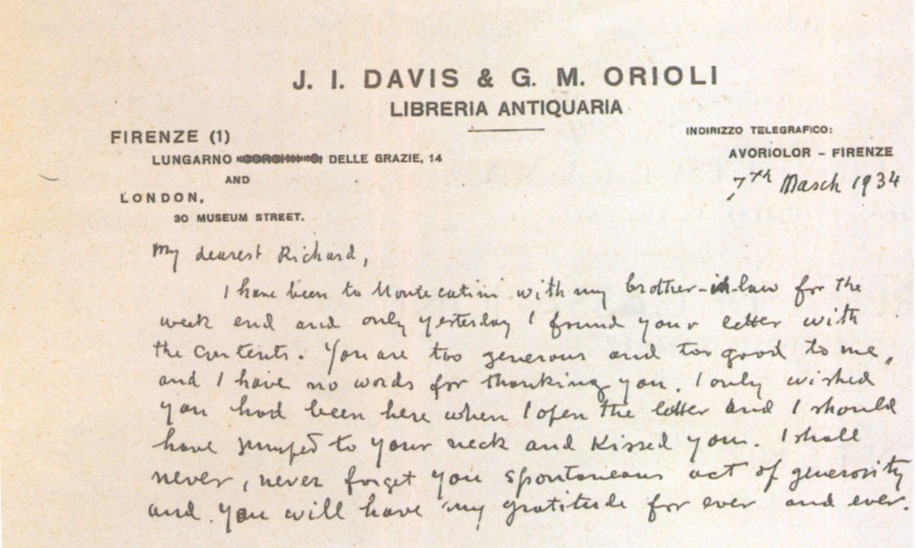 J. I. DAVIS & G. M. ORIOLI
LIBRERIA ANTIQUARIA
FIRENZE (1)
LUNGARNO DELLE GRAZIE, 14
AND
LONDON,
30 MUSEUM STREET.
INDIRIZZO TELEGRAFICO:
AVORIOLOR – FIRENZE
7th March 1934
My dearest Richard,
I have been to Montecatini with my brother-in-law for the
week end and only yesterday I found your letter with
the contents. You are too generous and too good to me,
and I have no words for thanking you. I only wished
you had been here when I open the letter and I should
have jumped to your neck and kissed you. I shall
never, never forget you spontaneous act of generosity
and you will have my gratitude for ever and ever.